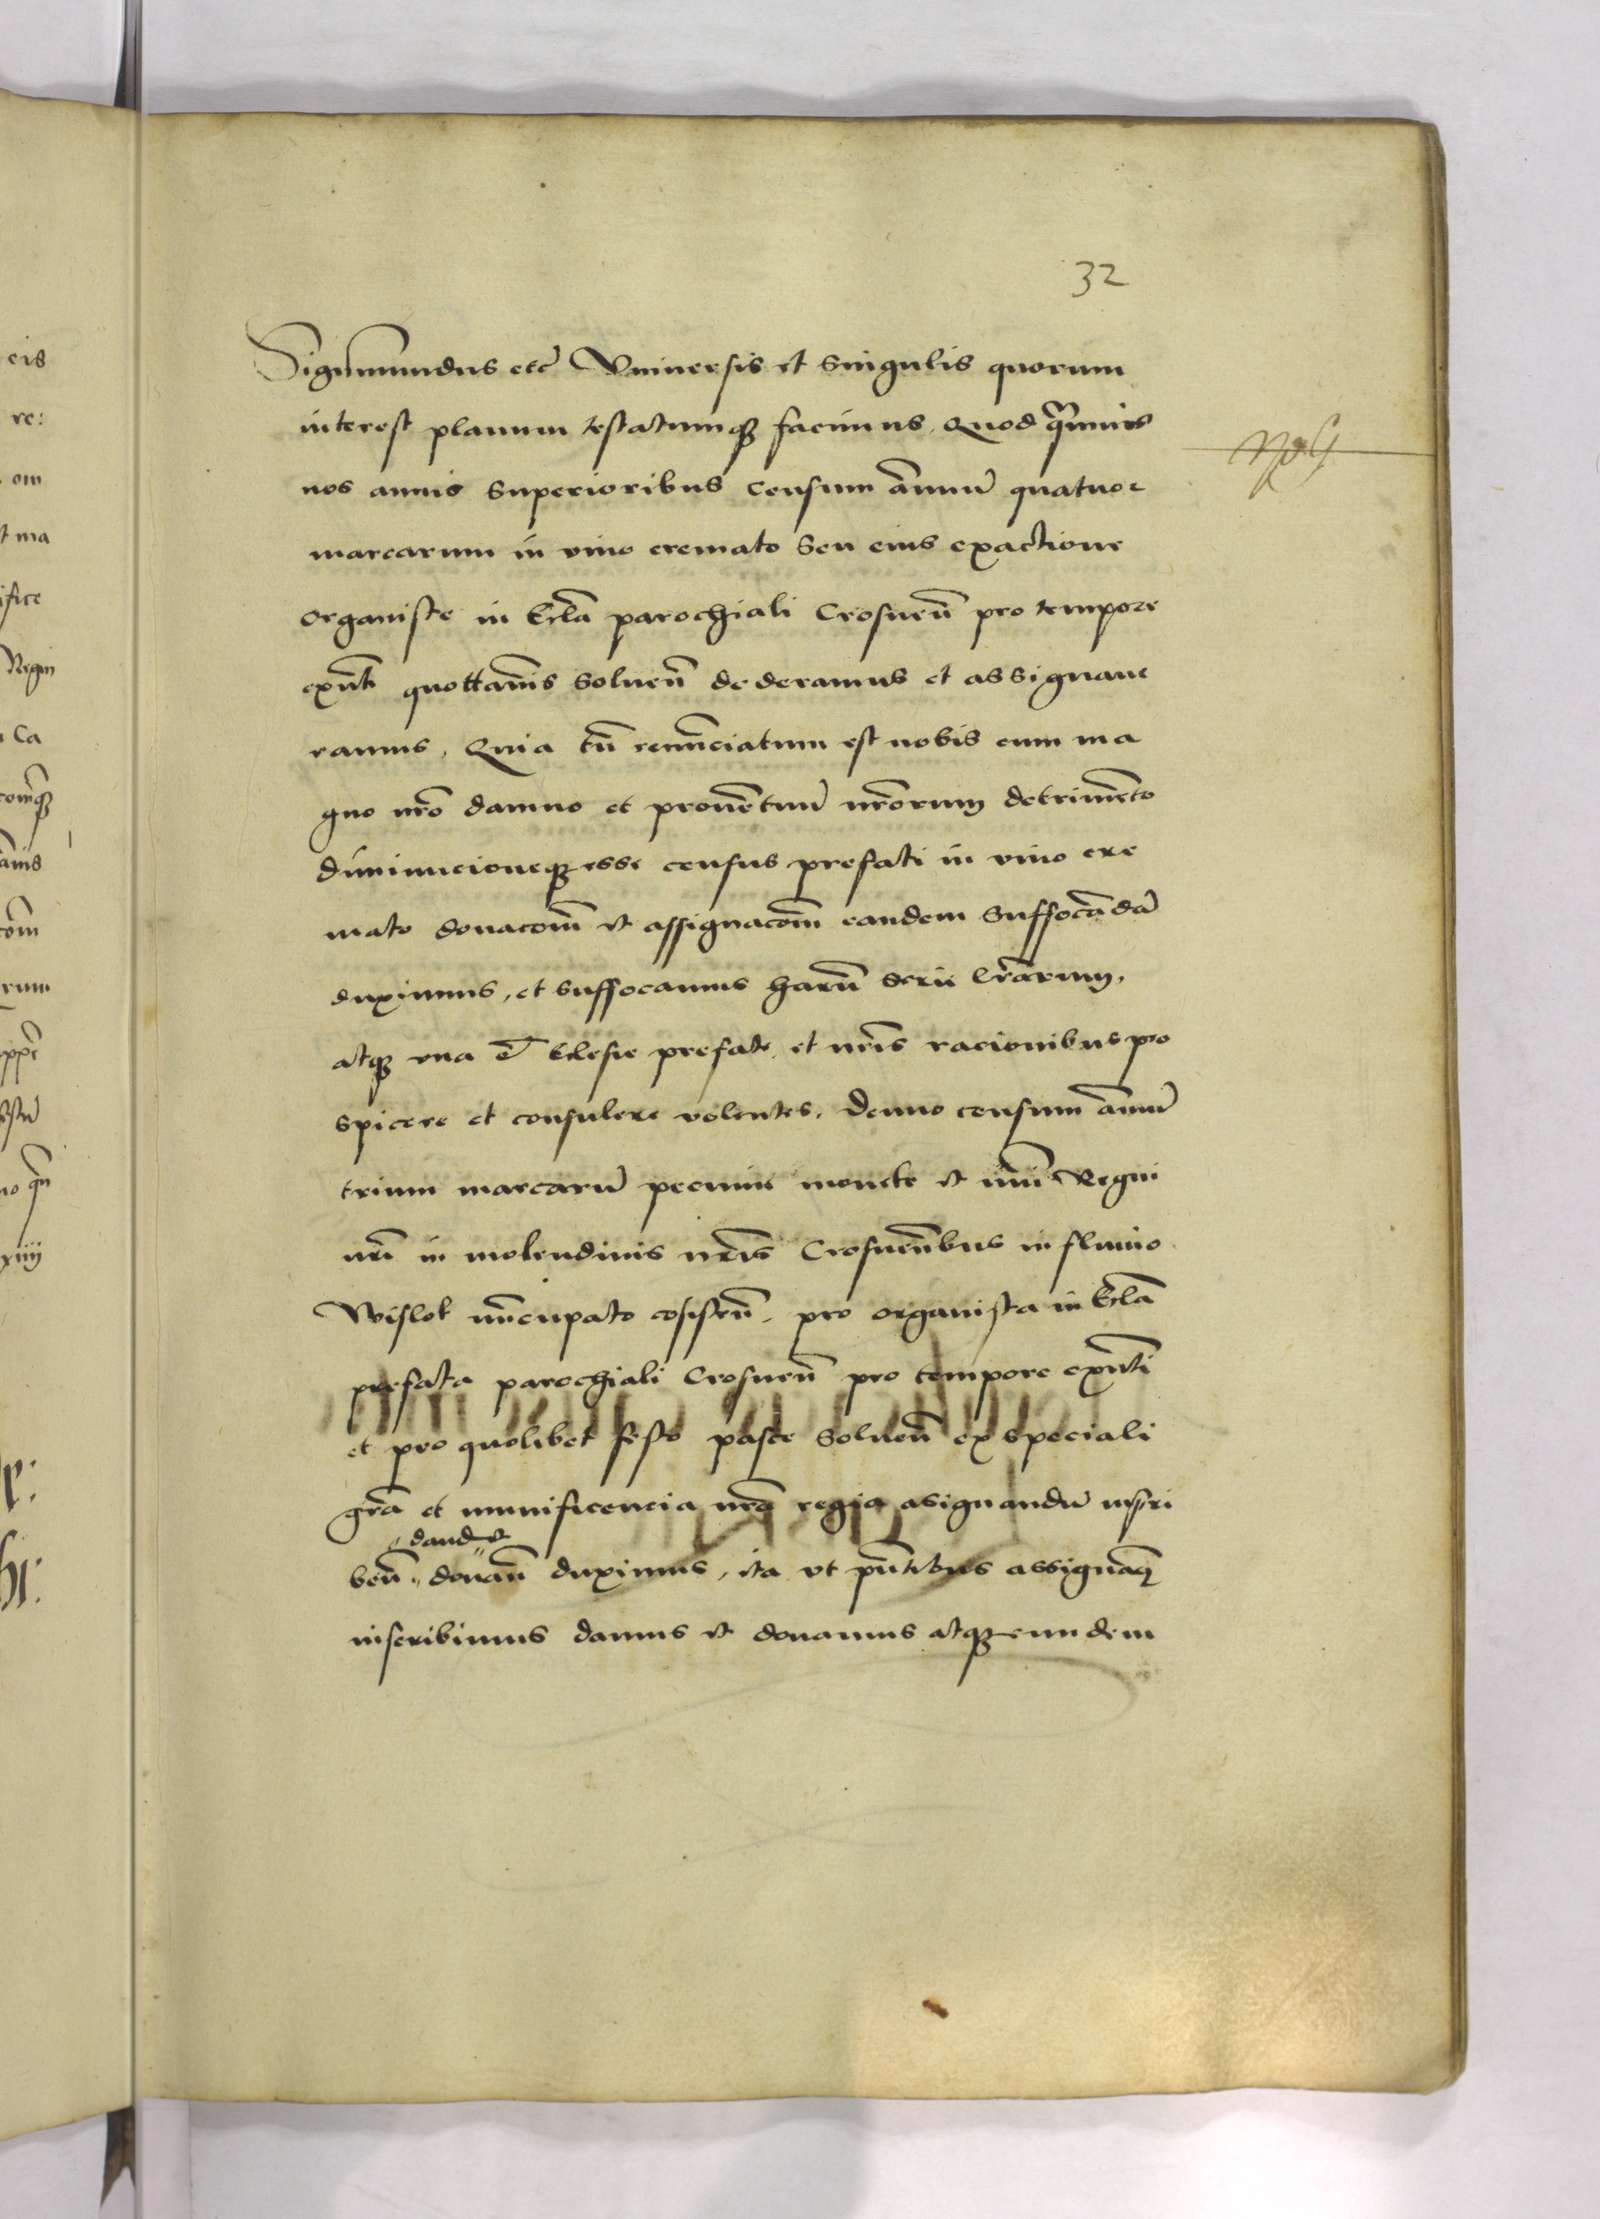 32
Sigismundus etc̃ Vniuersis et singulis quorum
interest planum testatumq; facimus, Quod qͣmuis
nos annis superioribus censum ãnuũ quatuor
marcarum in vino cremato seu eius exactione
organiste in Eccl̃a parochiali Crosneñ pro tempore
exñti quottañis soluen̄ dederamus et assignaue
ramus, Quia tñ renũciatum est nobis cum ma
gno nr̃o damno et prouẽtuũ nr̃orum detrimẽto
diminucioneq; esse census prefati in vino cre
mato donacoñi et assignacoñi eandem suffocãdã
duximus, et suffocamus harũ serie l̃rarum,
atq; vna c̄ Eclesie prefate et nr̃is racionibus pro
spicere et consulere volentes, denuo censum ãnuũ
trium marcarũ pecunie monete et nũi Regni
nr̃i in molendinis nr̃is Crosnen̄bus in fluuio
Wislok nũcupato cosisteñ, pro organista in Eccl̃a
prefata parochiali Crosneñ pro tempore exñti
et pro quolibet festo pasce solueñ ex speciali
gr̃a et munificencia nr̃a regia asignandũ inscri
dand et
beñ, donañ duximus, ita vt pñtibus assignãq;
inscribimus damus et donamus atq; eundem
eis
re:
om
t ma
ifice
Regni
Ca